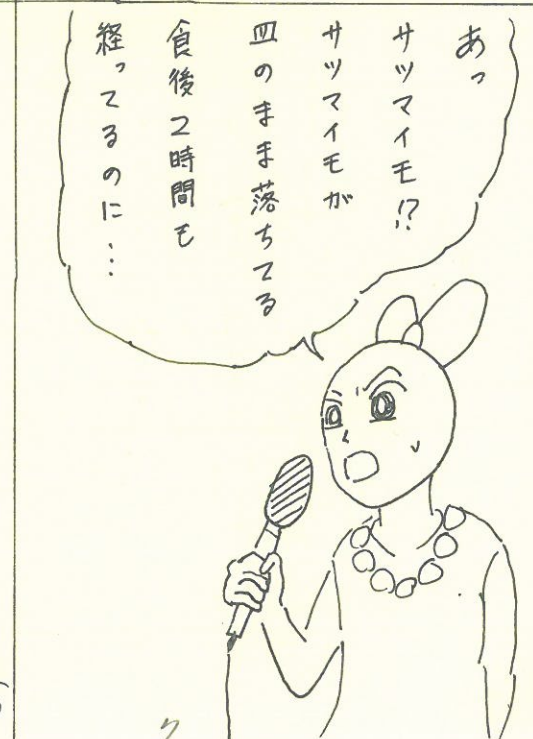 あっ
サツマイモ!?
サツマイモが
皿のまま落ちてる
食後2時間も
経ってるのに…